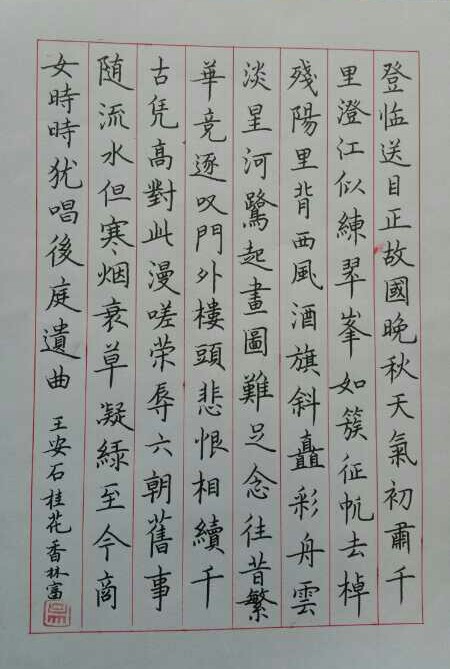 登临送目正故國晚秋天氣初肅千
里澄江似練翠峯如簇征帆去棹
殘陽里背西風酒旗斜矗彩舟雲
淡星河鷺起畫圖難足念往昔繁
華竞逐叹門外樓頭悲恨相續千
古凭高對此漫嗟荣辱六朝舊事
随流水但寒烟衰草凝緑至今商
女時時犹唱後庭遺曲 王安石桂花香林富